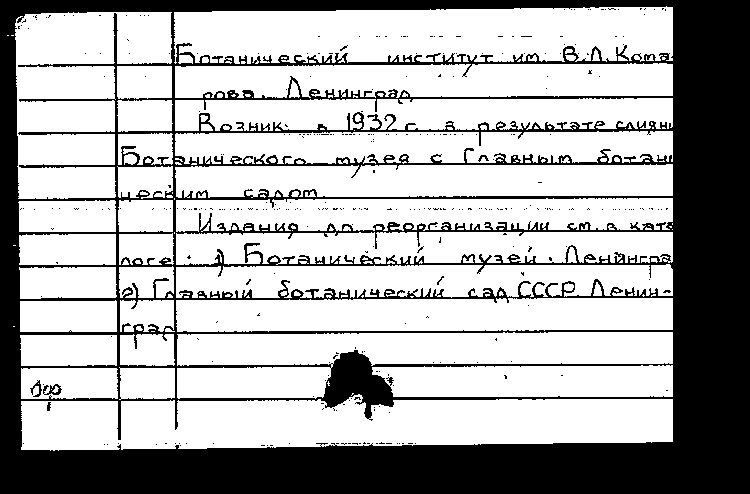 Ботанический институт им. В.Л.Кома
рова. Ленинград
Возник в 1932 г. в результате слияни
Ботанического музея с Главным ботани
ческим садом.
Издания до реорганизации см. в ката
логе: 1) Ботанический музей. Ленингра
2) Главный ботанический сад СССР Ленин-
град.